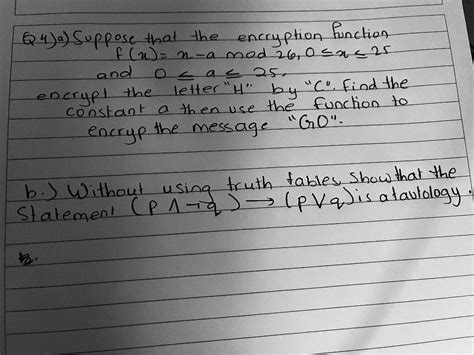 Q4)a) Suppose that the encryption function
f(x) = x-a mod 26, 0 ≤ x ≤ 25
and 0 ≤ a ≤ 25,
encrypt the letter "H" by "C". Find the
constant a then use the function to
encryp the message "GO".
b.) Without using truth tables, Show that the
Statement (P ∧ ¬q) → (p ∨ q) is a taulology.